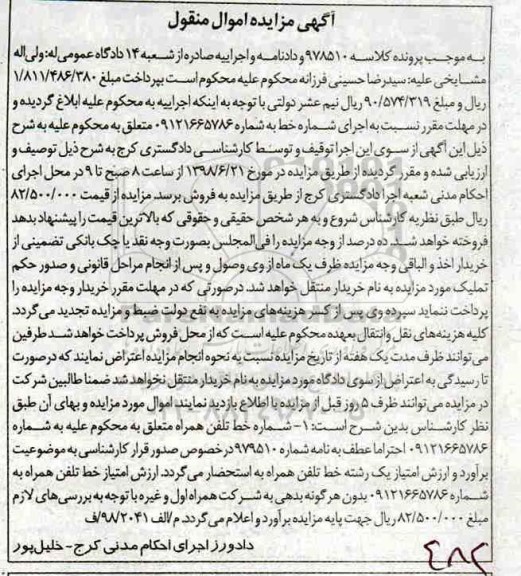 آگهی مزایده اموال منقول
به موجب پرونده کلاسه ۹۷۸۵۱۰ و دادنامه و اجراییه صادره از شعبه ۱۴ دادگاه عمومی له: ولی اله
مشایخی علیه: سیدرضا حسینی فرزانه محکوم علیه محکوم است بپرداخت مبلغ ۱/۸۱۱/۴۸۶/۳۸۰
ریال و مبلغ ۹۰/۵۷۴/۳۱۹ ریال نیم عشر دولتی با توجه به اینکه اجراییه به محکوم علیه ابلاغ گردیده و
در مهلت مقرر نسبت به اجرای شماره خط به شماره ۰۹۱۲۱۶۶۵۷۸۶ متعلق به محکوم علیه به شرح
ذیل این آگهی از سوی این اجرا توقیف و توسط کارشناسی دادگستری کرج به شرح ذیل توصیف و
ارزیابی شده و مقرر گردیده از طریق مزایده در مورخ ۱۳۹۸/۶/۲۱ از ساعت ۸ صبح تا ۹ در محل اجرای
احکام مدنی شعبه اجرا دادگستری کرج از طریق مزایده به فروش برسد. مزایده از قیمت ۸۲/۵۰۰/۰۰۰
ریال طبق نظریه کارشناس شروع و به هر شخص حقیقی و حقوقی که بالاترین قیمت را پیشنهاد بدهد
فروخته خواهد شد. ده درصد از وجه مزایده را فی المجلس بصورت وجه نقد یا چک بانکی تضمینی از
خریدار اخذ و الباقی وجه مزایده ظرف یک ماه از وی وصول و پس از انجام مراحل قانونی و صدور حکم
تملیک مورد مزایده به نام خریدار منتقل خواهد شد. درصورتی که در مهلت مقرر خریدار وجه مزایده را
پرداخت ننماید سپرده وی پس از کسر هزینه های مزایده به نفع دولت ضبط و مزایده تجدید می گردد.
کلیه هزینه های نقل وانتقال بعهده محکوم علیه است که از محل فروش پرداخت خواهد شد طرفین
می توانند ظرف مدت یک هفته از تاریخ مزایده نسبت به نحوه انجام مزایده اعتراض نمایند که درصورت
تا رسیدگی به اعتراض از سوی دادگاه مورد مزایده به نام خریدار منتقل نخواهد شد ضمنا طالبین شرکت
در مزایده می توانند ظرف ۵ روز قبل از مزایده با اطلاع بازدید نمایند اموال مورد مزایده و بهای آن طبق
نظر کارشناس بدین شرح است: ۱- شماره خط تلفن همراه متعلق به محکوم علیه به شماره
۰۹۱۲۱۶۶۵۷۸۶ احتراما عطف به نامه شماره ۹۷۹۵۱۰ درخصوص صدور قرار کارشناسی به موضوعیت
برآورد و ارزش امتیاز یک رشته خط تلفن همراه به استحضار می گردد. ارزش امتیاز خط تلفن همراه به
شماره ۰۹۱۲۱۶۶۵۷۸۶ بدون هر گونه بدهی به شرکت همراه اول و غیره با توجه به بررسی های لازم
مبلغ ۸۲/۵۰۰/۰۰۰ ریال جهت پایه مزایده برآورد و اعلام می گردد. م/الف ۹۸/۲۰۴۱/ف
دادورز اجرای احکام مدنی کرج- خلیل پور